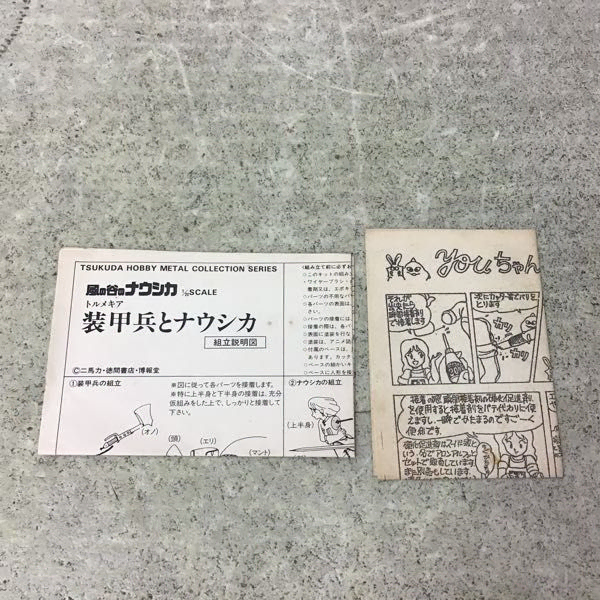 TSUKUDA HOBBY METAL COLLECTION SERIES
風の谷のナウシカ
SCALE
トルメキア
装甲兵とナウシカ
組立説明図
©二馬力・徳間書店・博報堂
①装甲兵の組立
※図に従って各パーツを接着します。
※特に上半身と下半身の接着は、充分
仮組みをした上で、しっかりと接着して
下さい。
(オノ)
(頭)
(エリ)
(マント)
②ナウシカの組立
(上半身)
<組み立て前に必ずお
○このキットの組み
・ワイヤーブラシ・
着剤又は、エポキ
○パーツの不用なバ
○各パーツの表面は
さい。
○パーツの接着には
○接着の際は、各パ
表面に塗装を行な
○塗装は、アニメ誌
○付属のベースは、
あります。カック
○ベースの細かいキ
○ベースに人形を接
youちゃん
それが
出来たら
瞬間接着剤
で接着します
次にカッター等でバリを
とります
カリ
カリ
接着の際 瞬間接着剤の硬化促進剤
を使用すると接着剤をパテ代わりに使
えますし、一瞬でかたまるのですご〜く
便点です。